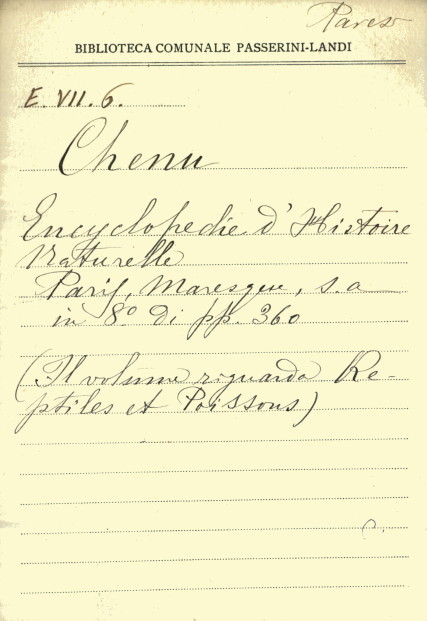 BIBLIOTECA COMUNALE PASSERINI-LANDI
E. VII. 6.
Chenu
Encyclopedie d'Histoire
Naturelle
Paris, Maresque, s.a
in 8º di pp. 360
(Il volume riguarda Re-
ptiles et Poissons)